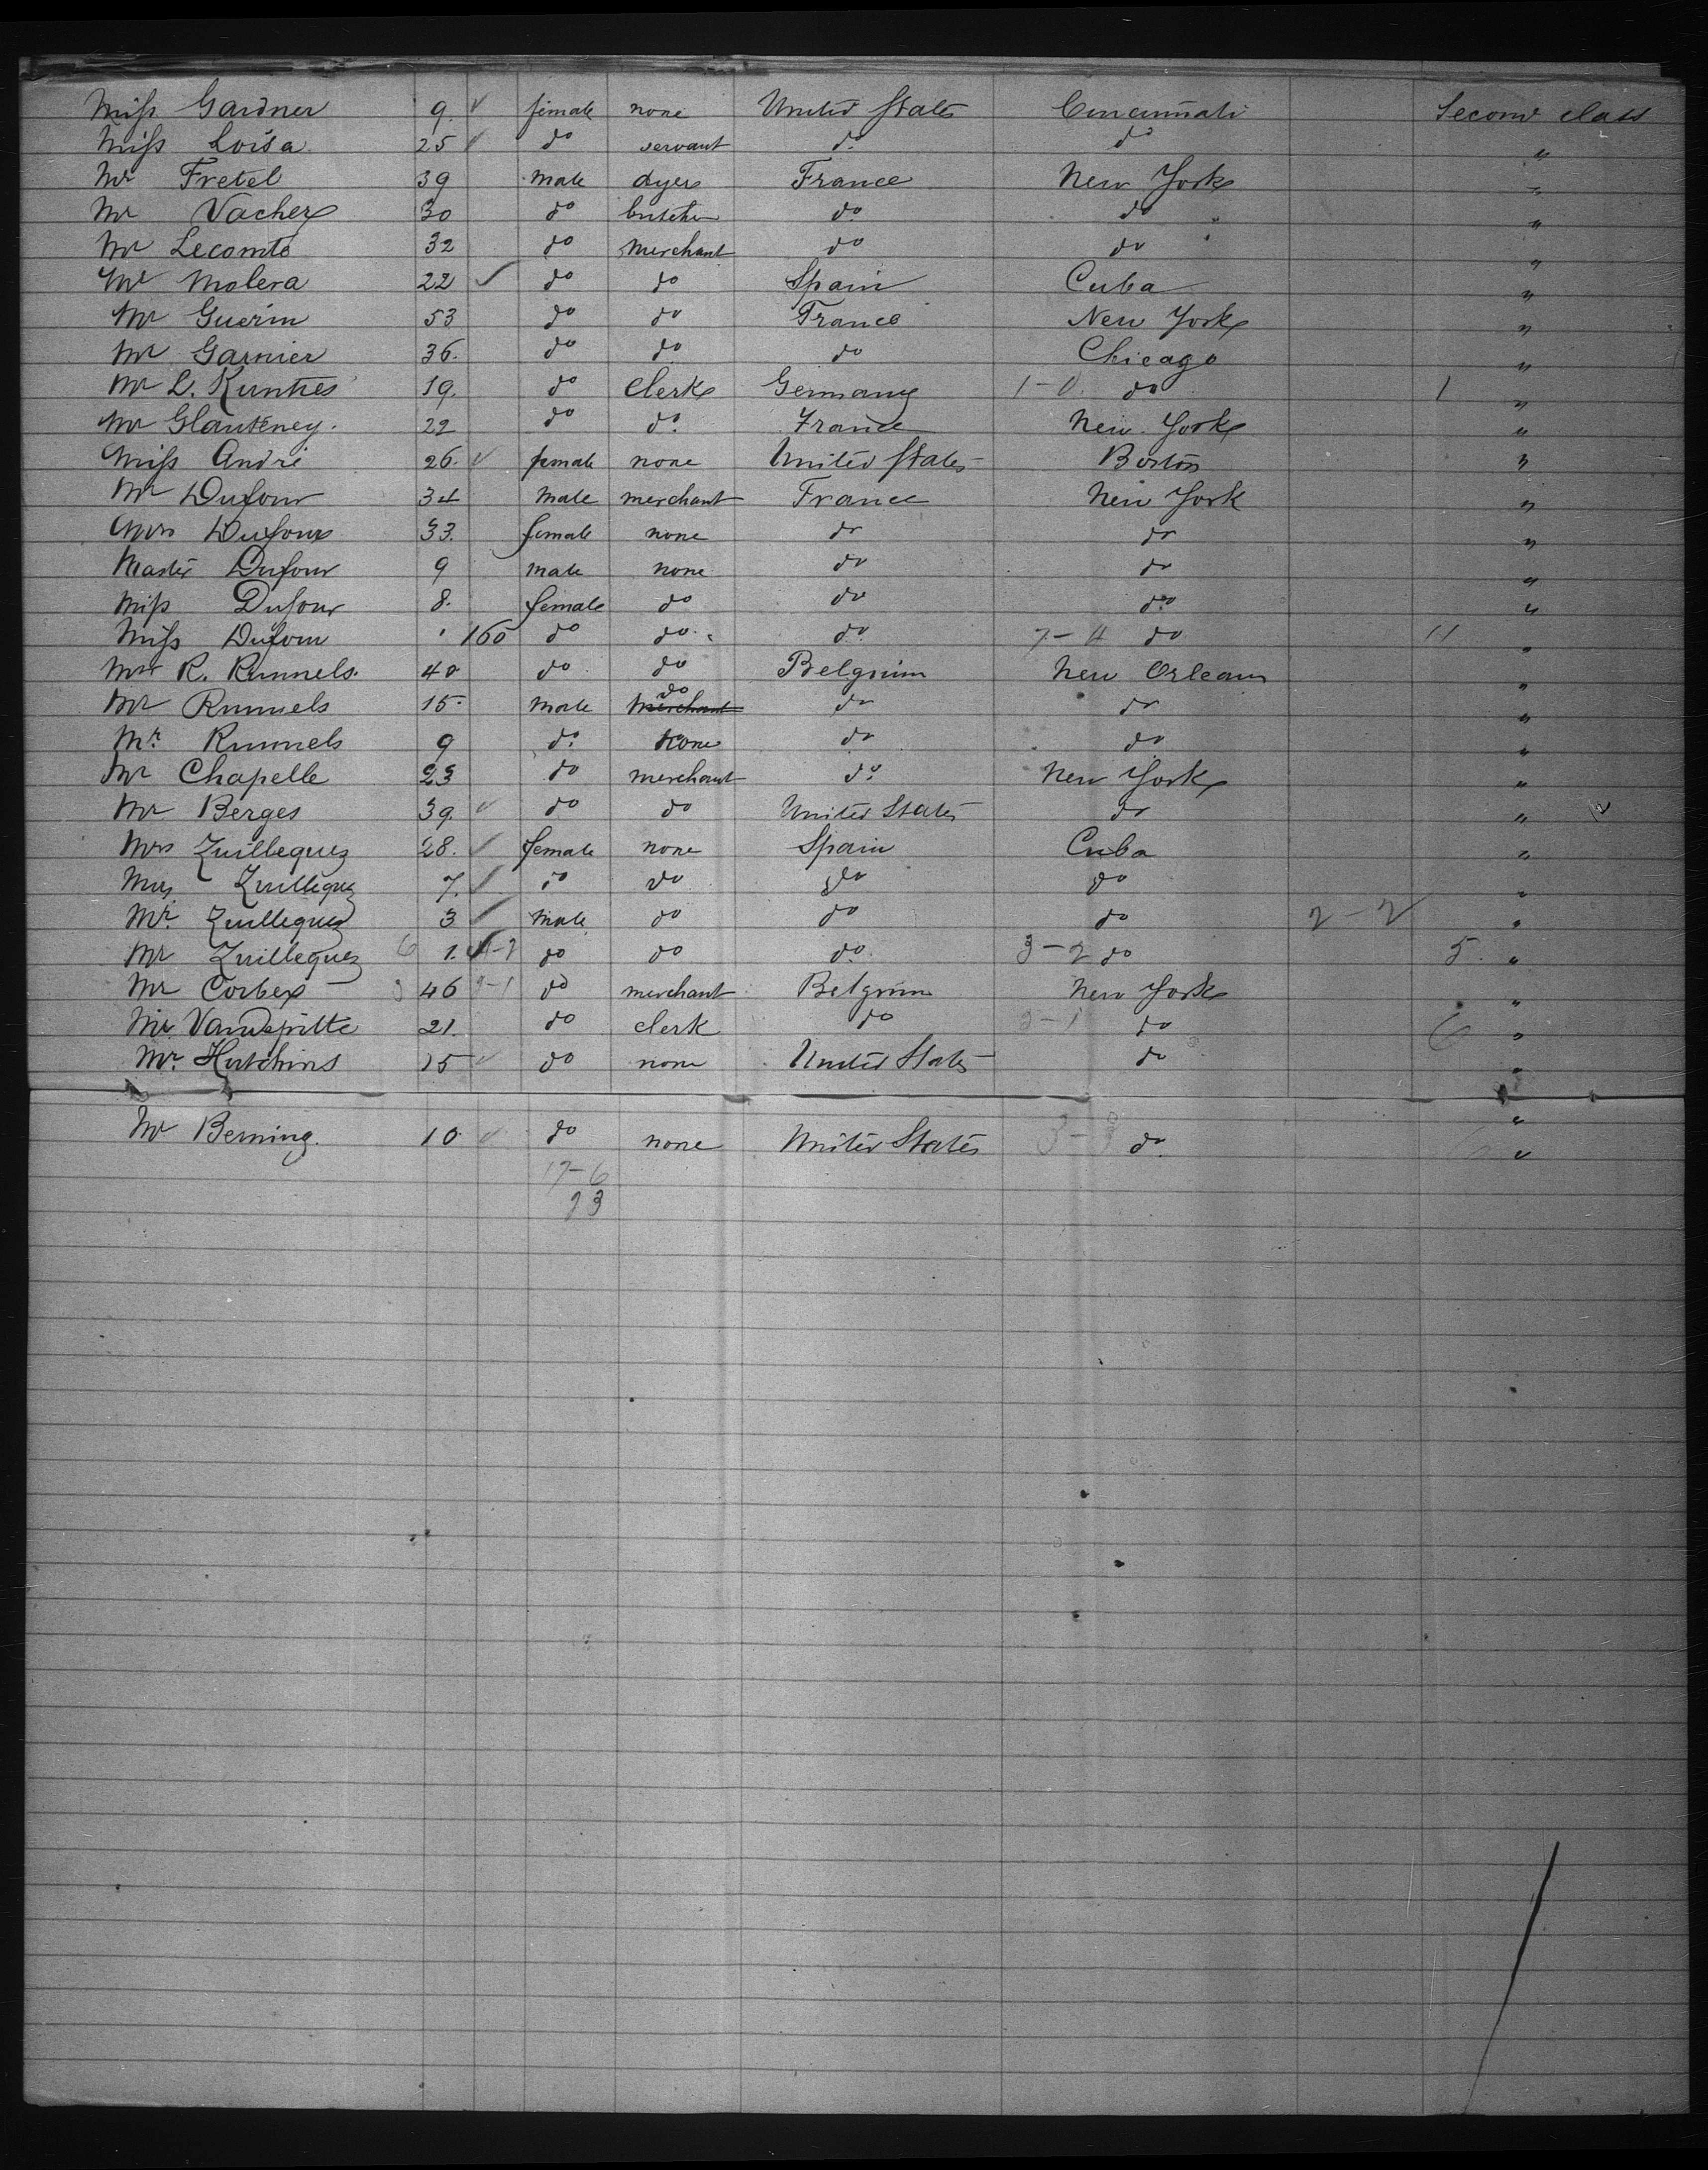 Miss Gardner 9. ✓ female none United States Cincinnati Second class
Miss Loisa 25 ✓ do servant do do "
Mr Fretel 39 male dyer France New York "
Mr Vacher 30 do butcher do do "
Mr Lecomte 32 do merchant do do "
Mr Molera 22 ✓ do do Spain Cuba "
Mr Guerin 53 do do France New York "
Mr Garnier 36. do do do Chicago "
Mr L. 19. do Clerk Germany 1-0 do 1 "
Mr 22 do do France New York "
Miss André 26. ✓ female none United States Boston "
Mr Dufour 34 male merchant France New York "
Mrs Dufour 33. female none do do "
Master Dufour 9 male none do do "
Miss Dufour 8. female do do do "
Miss Dufour 160 do do do 7-4 do 11 "
Mrs R. Runnels. 40 do do Belgium New Orleans "
Mr Runnels 15. male do merchant do do "
Mr. Runnels 9 do none do do "
Mr Chapelle 23 do merchant do New York "
Mr Berges 39. ✓ do do United States do "
Mrs Zuilleguez 28. ✓ female none Spain Cuba "
Miss Zuilleguez 7. ✓ do do do do "
Mr. Zuilleguez 3 ✓ male do do do 2-2 "
Mr Zuilleguez 6 1. ✓ 4-2 do do do 3-2 do 5. "
Mr Corbex 46 do merchant Belgium New York "
Mr 21. do clerk do do 6 "
Mr. Hutchins 15 ✓ do none United States do "
Mr Berning. 10 ✓ do none United States 3-3 do. "
17-6
23